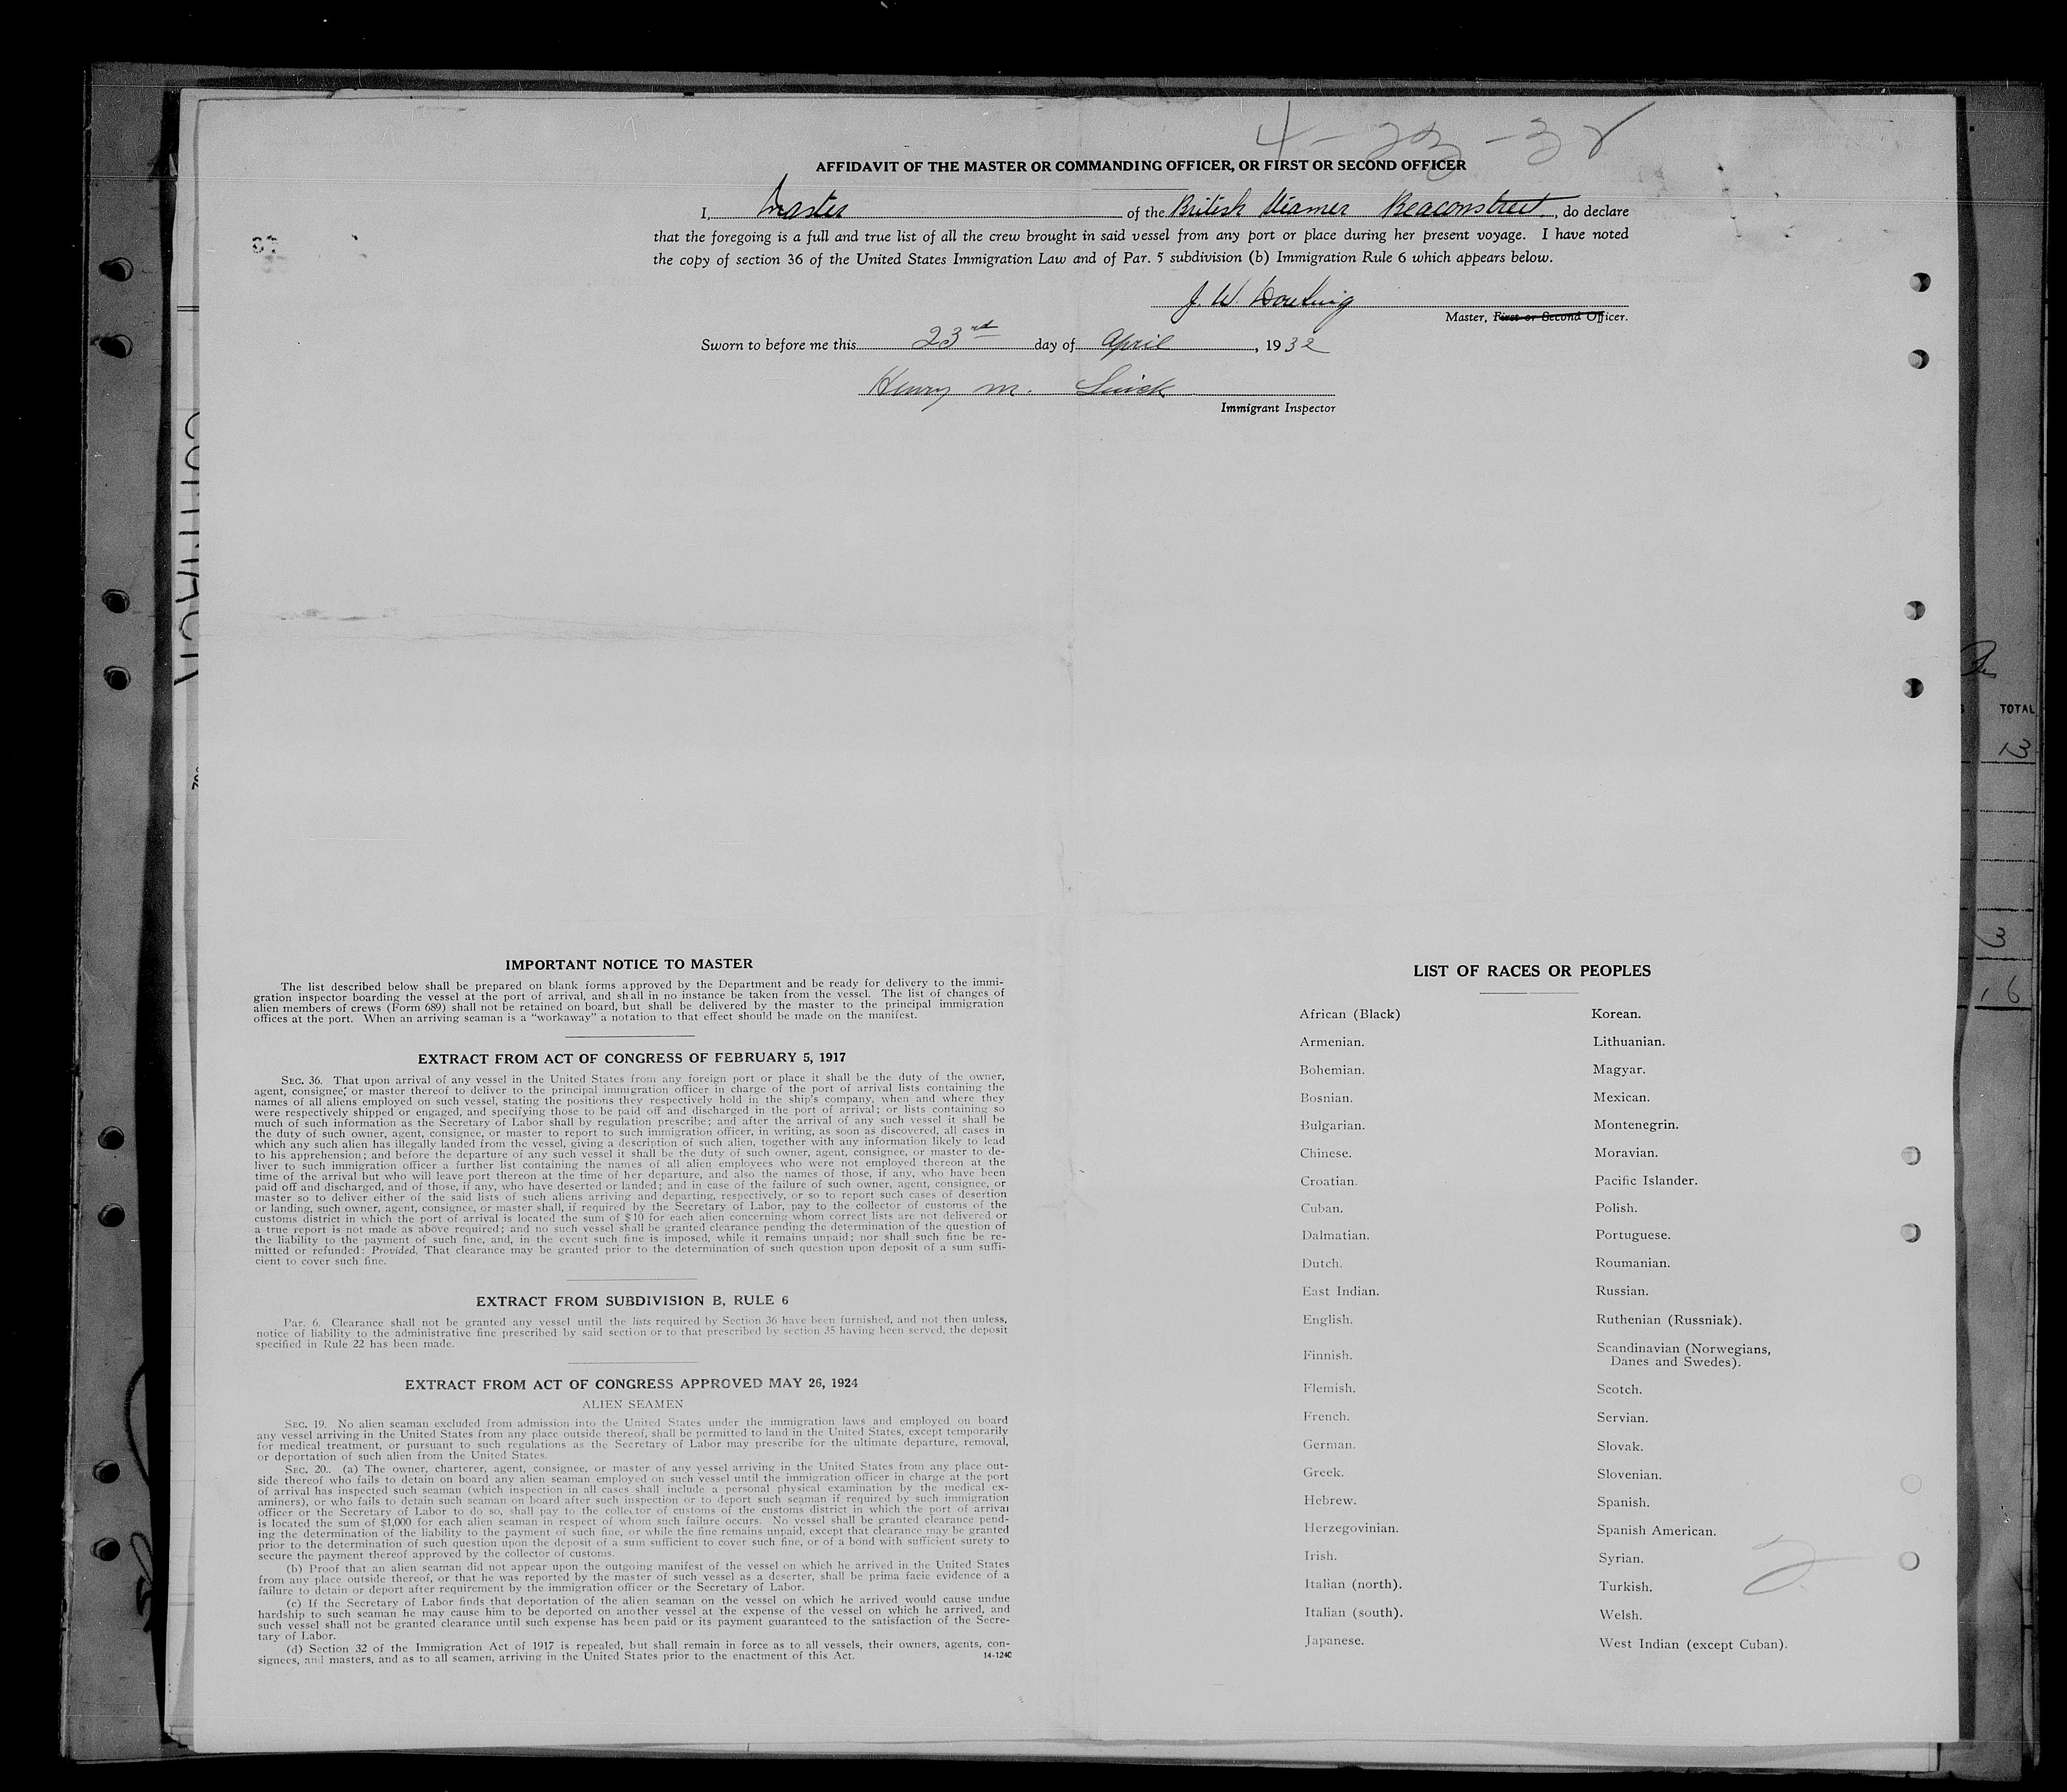 4-23-32
AFFIDAVIT OF THE MASTER OR COMMANDING OFFICER, OR FIRST OR SECOND OFFICER
I, Master of the British Steamer Beaconstreet, do declare
that the foregoing is a full and true list of all the crew brought in said vessel from any port or place during her present voyage. I have noted
the copy of section 36 of the United States Immigration Law and of Par. 5 subdivision (b) Immigration Rule 6 which appears below.
J. W.
Master, First or Second Officer.
Sworn to before me this 23rd day of April, 1932
Henry M.
Immigrant Inspector
TOTAL
13
3
16
IMPORTANT NOTICE TO MASTER
The list described below shall be prepared on blank forms approved by the Department and be ready for delivery to the immi-
gration inspector boarding the vessel at the port of arrival, and shall in no instance be taken from the vessel. The list of changes of
alien members of crews (Form 689) shall not be retained on board, but shall be delivered by the master to the principal immigration
offices at the port. When an arriving seaman is a "workaway" a notation to that effect should be made on the manifest.
EXTRACT FROM ACT OF CONGRESS OF FEBRUARY 5, 1917
SEC. 36. That upon arrival of any vessel in the United States from any foreign port or place it shall be the duty of the owner,
agent, consignee, or master thereof to deliver to the principal immigration officer in charge of the port of arrival lists containing the
names of all aliens employed on such vessel, stating the positions they respectively hold in the ship's company, when and where they
were respectively shipped or engaged, and specifying those to be paid off and discharged in the port of arrival; or lists containing so
much of such information as the Secretary of Labor shall by regulation prescribe; and after the arrival of any such vessel it shall be
the duty of such owner, agent, consignee, or master to report to such immigration officer, in writing, as soon as discovered, all cases in
which any such alien has illegally landed from the vessel, giving a description of such alien, together with any information likely to lead
to his apprehension; and before the departure of any such vessel it shall be the duty of such owner, agent, consignee, or master to de-
liver to such immigration officer a further list containing the names of all alien employees who were not employed thereon at the
time of the arrival but who will leave port thereon at the time of her departure, and also the names of those, if any, who have been
paid off and discharged, and of those, if any, who have deserted or landed; and in case of the failure of such owner, agent, consignee, or
master so to deliver either of the said lists of such aliens arriving and departing, respectively, or so to report such cases of desertion
or landing, such owner, agent, consignee, or master shall, if required by the Secretary of Labor, pay to the collector of customs of the
customs district in which the port of arrival is located the sum of $10 for each alien concerning whom correct lists are not delivered or
a true report is not made as above required; and no such vessel shall be granted clearance pending the determination of the question of
the liability to the payment of such fine, and, in the event such fine is imposed, while it remains unpaid; nor shall such fine be re-
mitted or refunded: Provided, That clearance may be granted prior to the determination of such question upon deposit of a sum suffi-
cient to cover such fine.
EXTRACT FROM SUBDIVISION B, RULE 6
Par. 6. Clearance shall not be granted any vessel until the lists required by Section 36 have been furnished, and not then unless,
notice of liability to the administrative fine prescribed by said section or to that prescribed by section 35 having been served, the deposit
specified in Rule 22 has been made.
EXTRACT FROM ACT OF CONGRESS APPROVED MAY 26, 1924
ALIEN SEAMEN
SEC. 19. No alien seaman excluded from admission into the United States under the immigration laws and employed on board
any vessel arriving in the United States from any place outside thereof, shall be permitted to land in the United States, except temporarily
for medical treatment, or pursuant to such regulations as the Secretary of Labor may prescribe for the ultimate departure, removal,
or deportation of such alien from the United States.
SEC. 20.. (a) The owner, charterer, agent, consignee, or master of any vessel arriving in the United States from any place out-
side thereof who fails to detain on board any alien seaman employed on such vessel until the immigration officer in charge at the port
of arrival has inspected such seaman (which inspection in all cases shall include a personal physical examination by the medical ex-
aminers), or who fails to detain such seaman on board after such inspection or to deport such seaman if required by such immigration
officer or the Secretary of Labor to do so, shall pay to the collector of customs of the customs district in which the port of arrival
is located the sum of $1,000 for each alien seaman in respect of whom such failure occurs. No vessel shall be granted clearance pend-
ing the determination of the liability to the payment of such fine, or while the fine remains unpaid, except that clearance may be granted
prior to the determination of such question upon the deposit of a sum sufficient to cover such fine, or of a bond with sufficient surety to
secure the payment thereof approved by the collector of customs.
(b) Proof that an alien seaman did not appear upon the outgoing manifest of the vessel on which he arrived in the United States
from any place outside thereof, or that he was reported by the master of such vessel as a deserter, shall be prima facie evidence of a
failure to detain or deport after requirement by the immigration officer or the Secretary of Labor.
(c) If the Secretary of Labor finds that deportation of the alien seaman on the vessel on which he arrived would cause undue
hardship to such seaman he may cause him to be deported on another vessel at the expense of the vessel on which he arrived, and
such vessel shall not be granted clearance until such expense has been paid or its payment guaranteed to the satisfaction of the Secre-
tary of Labor.
(d) Section 32 of the Immigration Act of 1917 is repealed, but shall remain in force as to all vessels, their owners, agents, con-
signees, and masters, and as to all seamen, arriving in the United States prior to the enactment of this Act.
14-1240
LIST OF RACES OR PEOPLES
African (Black) Korean.
Armenian. Lithuanian.
Bohemian. Magyar.
Bosnian. Mexican.
Bulgarian. Montenegrin.
Chinese. Moravian.
Croatian. Pacific Islander.
Cuban. Polish.
Dalmatian. Portuguese.
Dutch. Roumanian.
East Indian. Russian.
English. Ruthenian (Russniak).
Finnish. Scandinavian (Norwegians,
Danes and Swedes).
Flemish. Scotch.
French. Servian.
German. Slovak.
Greek. Slovenian.
Hebrew. Spanish.
Herzegovinian. Spanish American.
Irish. Syrian.
Italian (north). Turkish.
Italian (south). Welsh.
Japanese. West Indian (except Cuban).